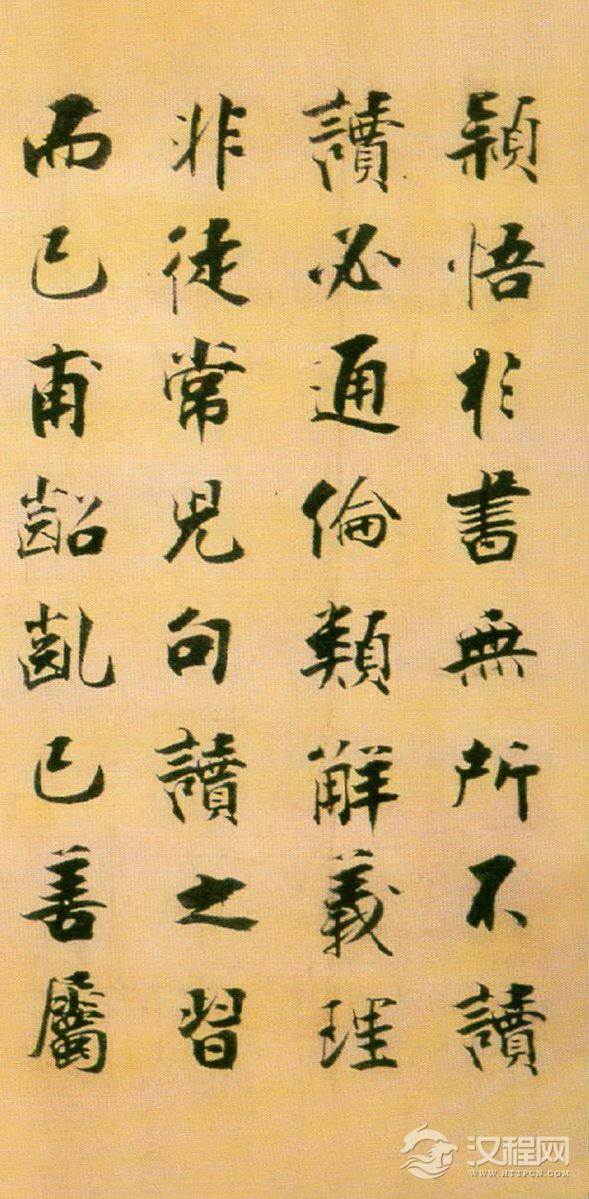 穎悟於書無所不讀
讀必通倫類解義理
非徒常児句讀之習
而已甫齠齓已善屬
汉程网
WWW.HTTPCN.COM